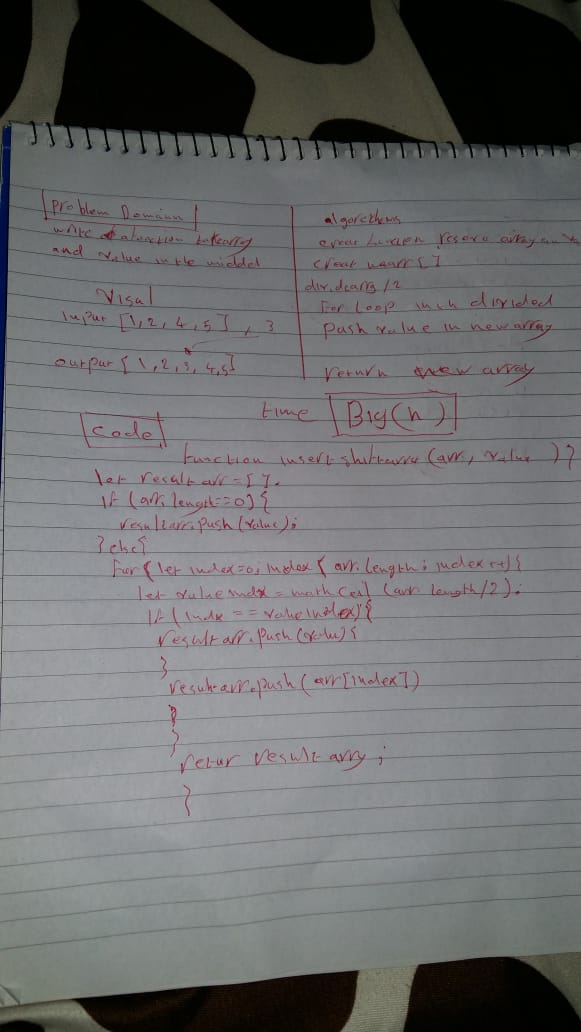 Problem Domain
write a function takearry
and value in the middel
Visal
Input [1, 2, 4, 5] , 3
output [1, 2, 3, 4, 5]
algorethems
creat function reseve array
creat newarr []
divide arr /2
For loop inch divided
Push value in new array
return new array
time Big(n)
Code
function insertshiftarry (arr, value ) {
let resultarr = [ ].
if (arr.length==0) {
resultarr.push (value);
} else {
For (let index=0; index < arr.length; index++) {
let valueindx = math ceil (arr length/2);
If (indx == valueindex) {
resultarr.push (valu) {
}
resultarr.push (arr[index])
}
}
retur resultarry ;
}